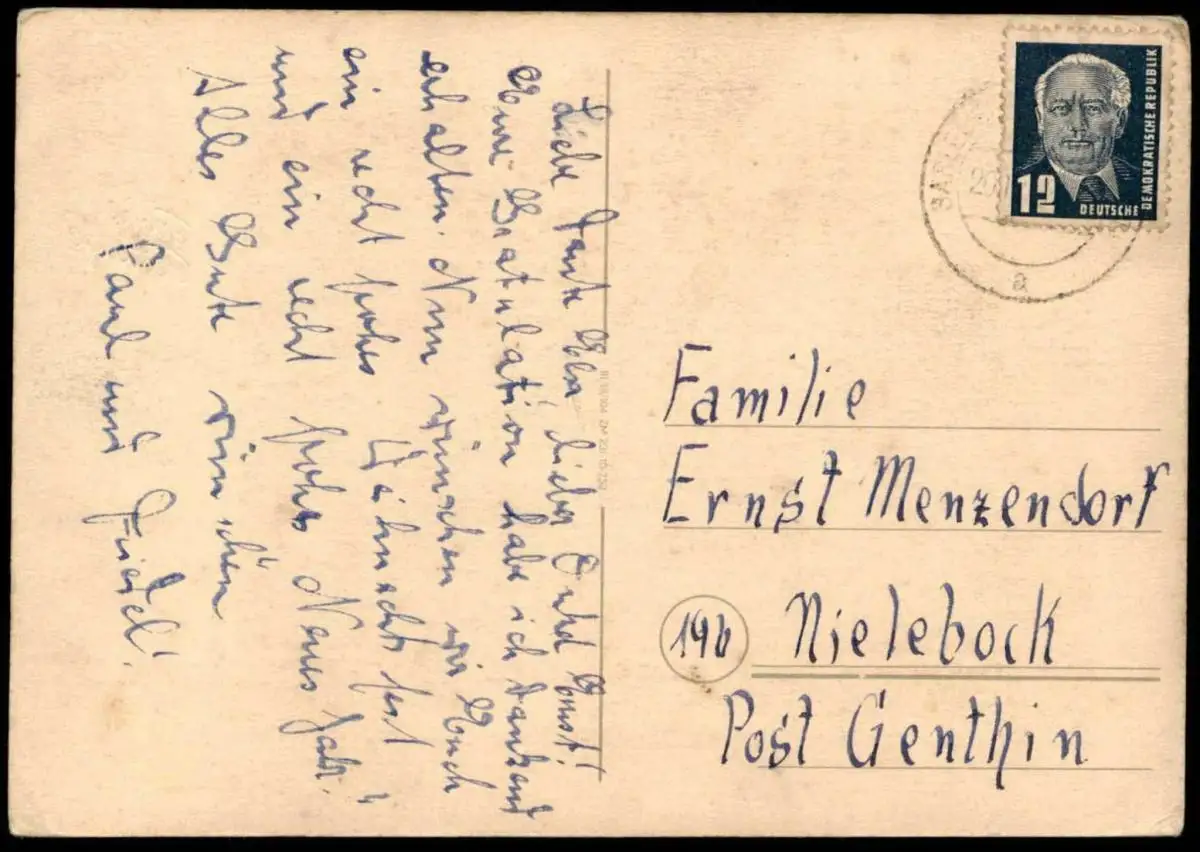 Liebe Tante Elso, lieber Onkel Ernst!
Eure Gratulation habe ich dankend
erhalten. Nun wünschen wir Euch
ein recht frohes Weihnachtsfest
und ein recht frohes Neues Jahr.
Alles Gute wünschen
Paul und Friedel!
DEUTSCHE
DEMOKRATISCHE REPUBLIK
12
a
Familie
Ernst Menzendorf
19b Nielebock
Post Genthin